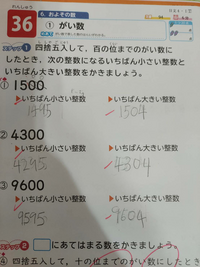 れんしゅう
36
6. およその数
① がい数
ステップ1 四捨五入して、百の位までのがい数に
したとき、次の整数になるいちばん小さい整数と
いちばん大きい整数をかきましょう。
① 1500
▶いちばん小さい整数 ▶いちばん大きい整数
1495 1504
② 4300
▶いちばん小さい整数 ▶いちばん大きい整数
4295 4304
③ 9600
▶いちばん小さい整数 ▶いちばん大きい整数
9595 9604
ステップ2 にあてはまる数をかきましょう。
④ 四捨五入して、十の位までのがい数にしたとき